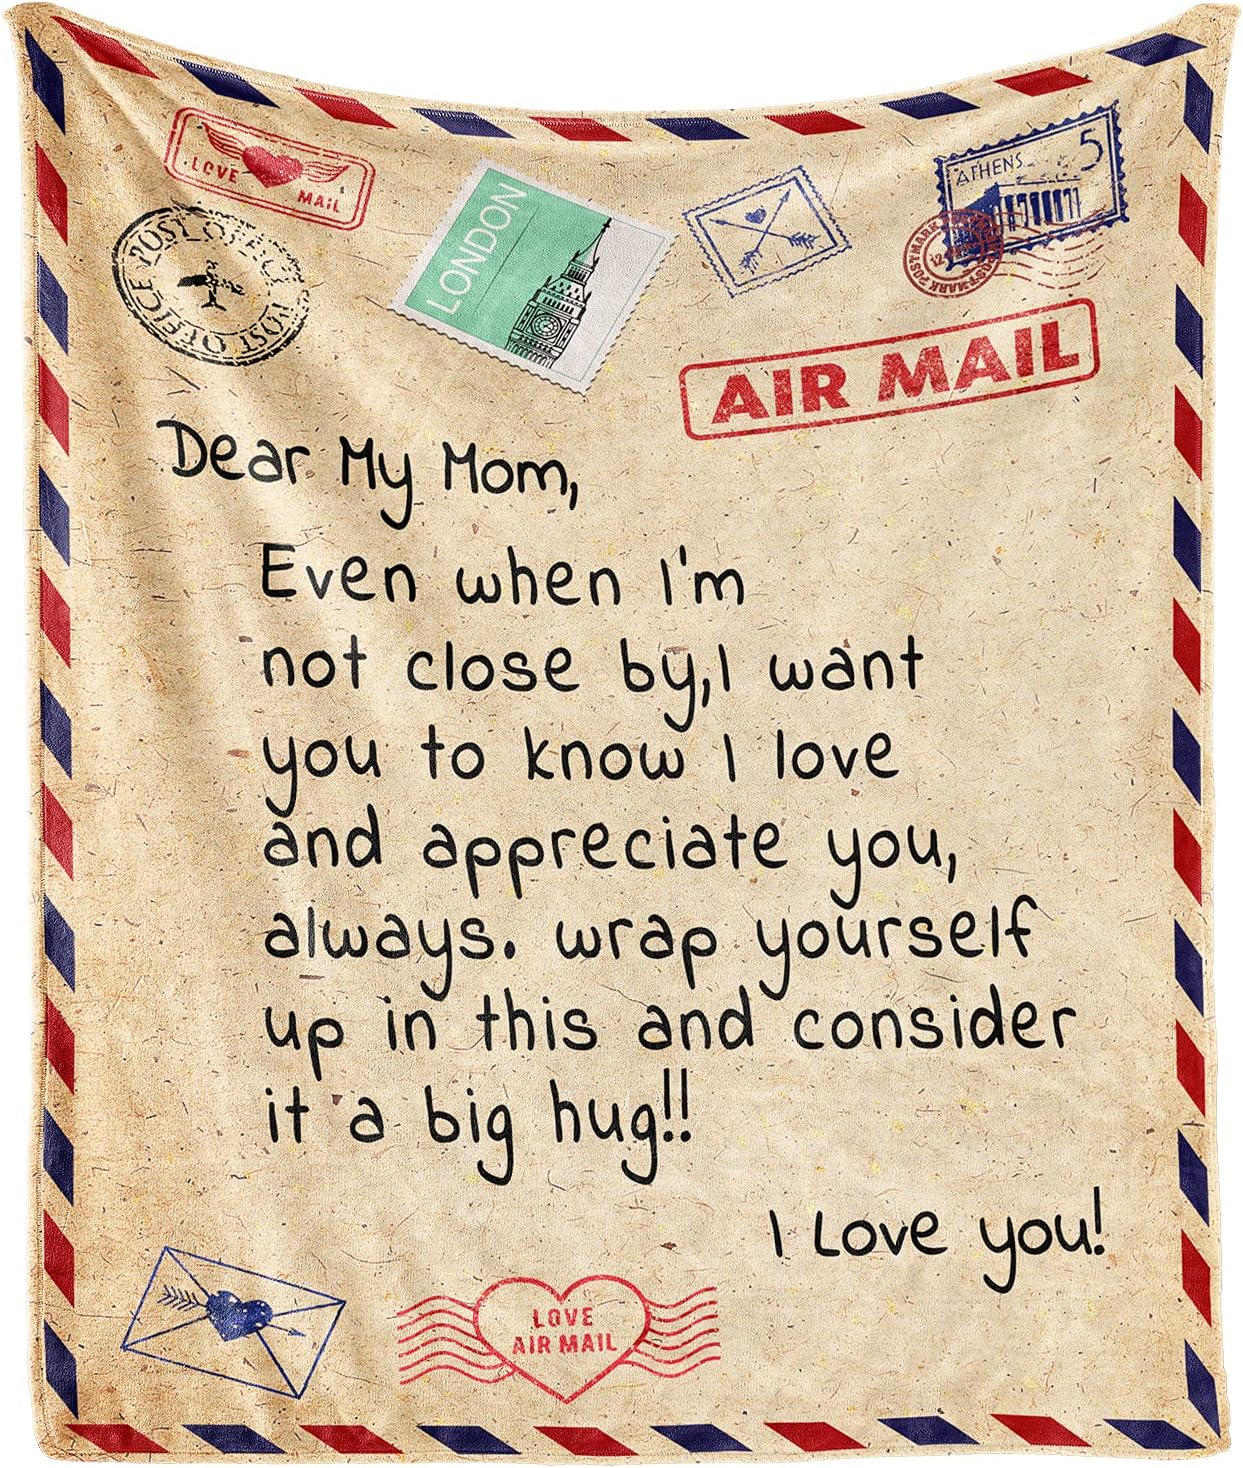 LOVE
MAIL
POST OFFICE POST OFFICE
LONDON
ATHENS
5
POSTMARK POSTMARK
AIR MAIL
Dear My Mom,
Even when I'm
not close by,I want
you to know I love
and appreciate you,
always. wrap yourself
up in this and consider
it a big hug!!
I Love you!
LOVE
AIR MAIL